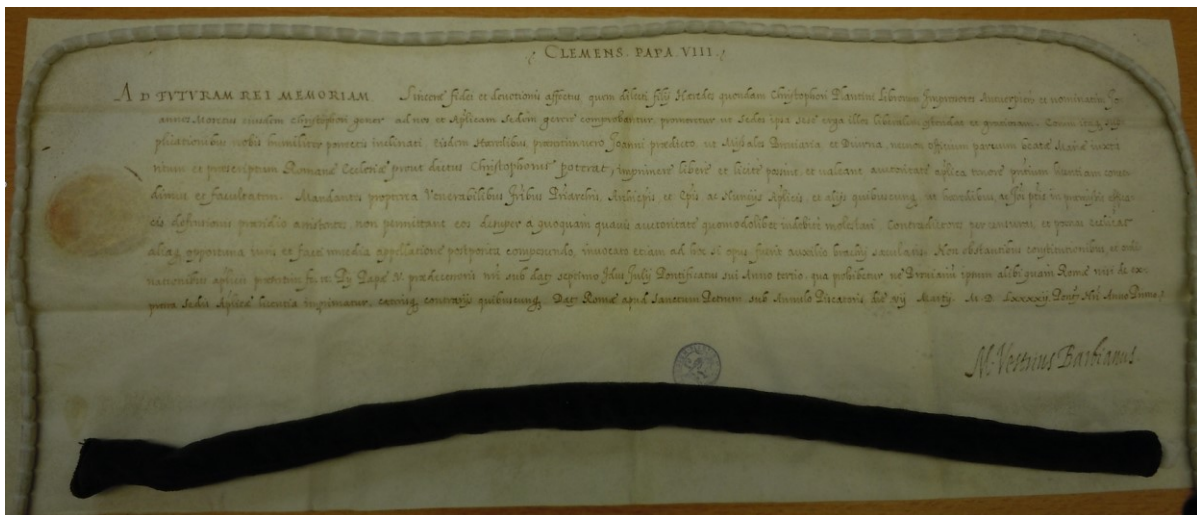 CLEMENS. PAPA. VIII.
AD FUTURAM REI MEMORIAM Sincerę fidei et devotionis affectus, quem dilecti filij Hęredes quondam Christophori Plantini Librorum Impressores Antverpien et nominatim Jo
annes Moretus eiusdem Christophori gener ad nos et Aplicam Sedem gerere comprobantur, promeretur ut Sedes ipsa se erga illos liberalem
plicationibus nobis humiliter porrectis inclinati Eisdem Hęredibus, Joanni prędicto, ut Missalia Breviaria et Diurna, necnon officium parvum beatę Marię iuxta
ritum et prescriptum Romanę Ecclesię prout dictus Christophorus poterat, imprimere liberè et licitè possint, et valeant auctoritate aplica tenore pntium licentiam conce
dimus et facultatem. Mandantes propterea Venerabilibus fribus Patriarchis, Archiepis, et Epis ac Nuncijs Aplicis, et alijs quibuscunq ut
cis defensionis pręsidio assistentes non permittant eos desuper à quoquam quavis auctoritate quomodolibet indebitè molestari. Contradictores per censuras, et poenas ecclicas
aliaq opportuna iuris et facti remedia appellatione postposita compescendo, invocato etiam ad hoc si opus fuerit auxilio brachij sęcularis. Non obstantibus constitutionibus, et ordi
nationibus aplicis Pij Papę V. prędecessoris nri sub dat septimo Idus Julij Pontificatus sui Anno tertio, qua prohibetur, ne Breviarium ipsum alibi quam Romę nisi de ex
pressa Sedis Aplicę licentia imprimatur, cęterisq contrarijs quibuscunq Dat Romę apud Sanctum Petrum sub Annulo Piscatoris, die vij Martij M. D. LXXXXII. Anno Primo
M. Vestrius Barbianus